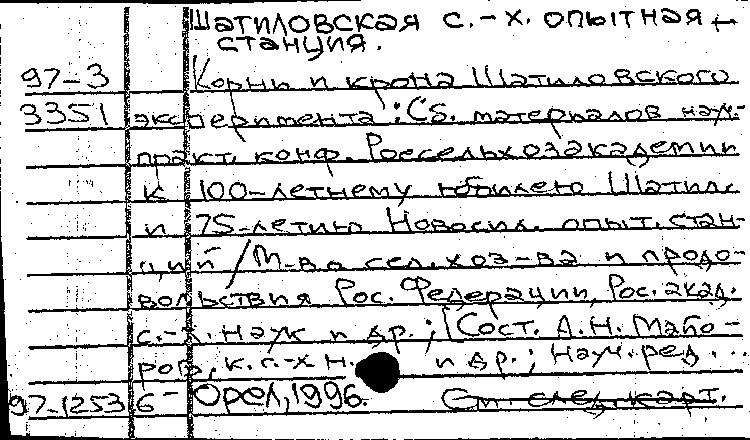 Шатиловская с.-х. опытная
станция.
97-3 Корни и крона Шатиловского
9351 эксперимента: Сб. материалов науч.-
практ. конф. Россельхозакадемии
к 100-летнему юбилею Шатил.
и 75-летию Новосил. опыт. стан-
ций / М-во сел. хоз-ва и продо-
вольствия Рос. Федерации, Рос. акад.
с.-х. наук и др.; [Сост. А.Н. Мабо-
ров, к.с.-х н. и др.; Науч. ред. ...
97-1253 6- Орел, 1996. См. след. карт.